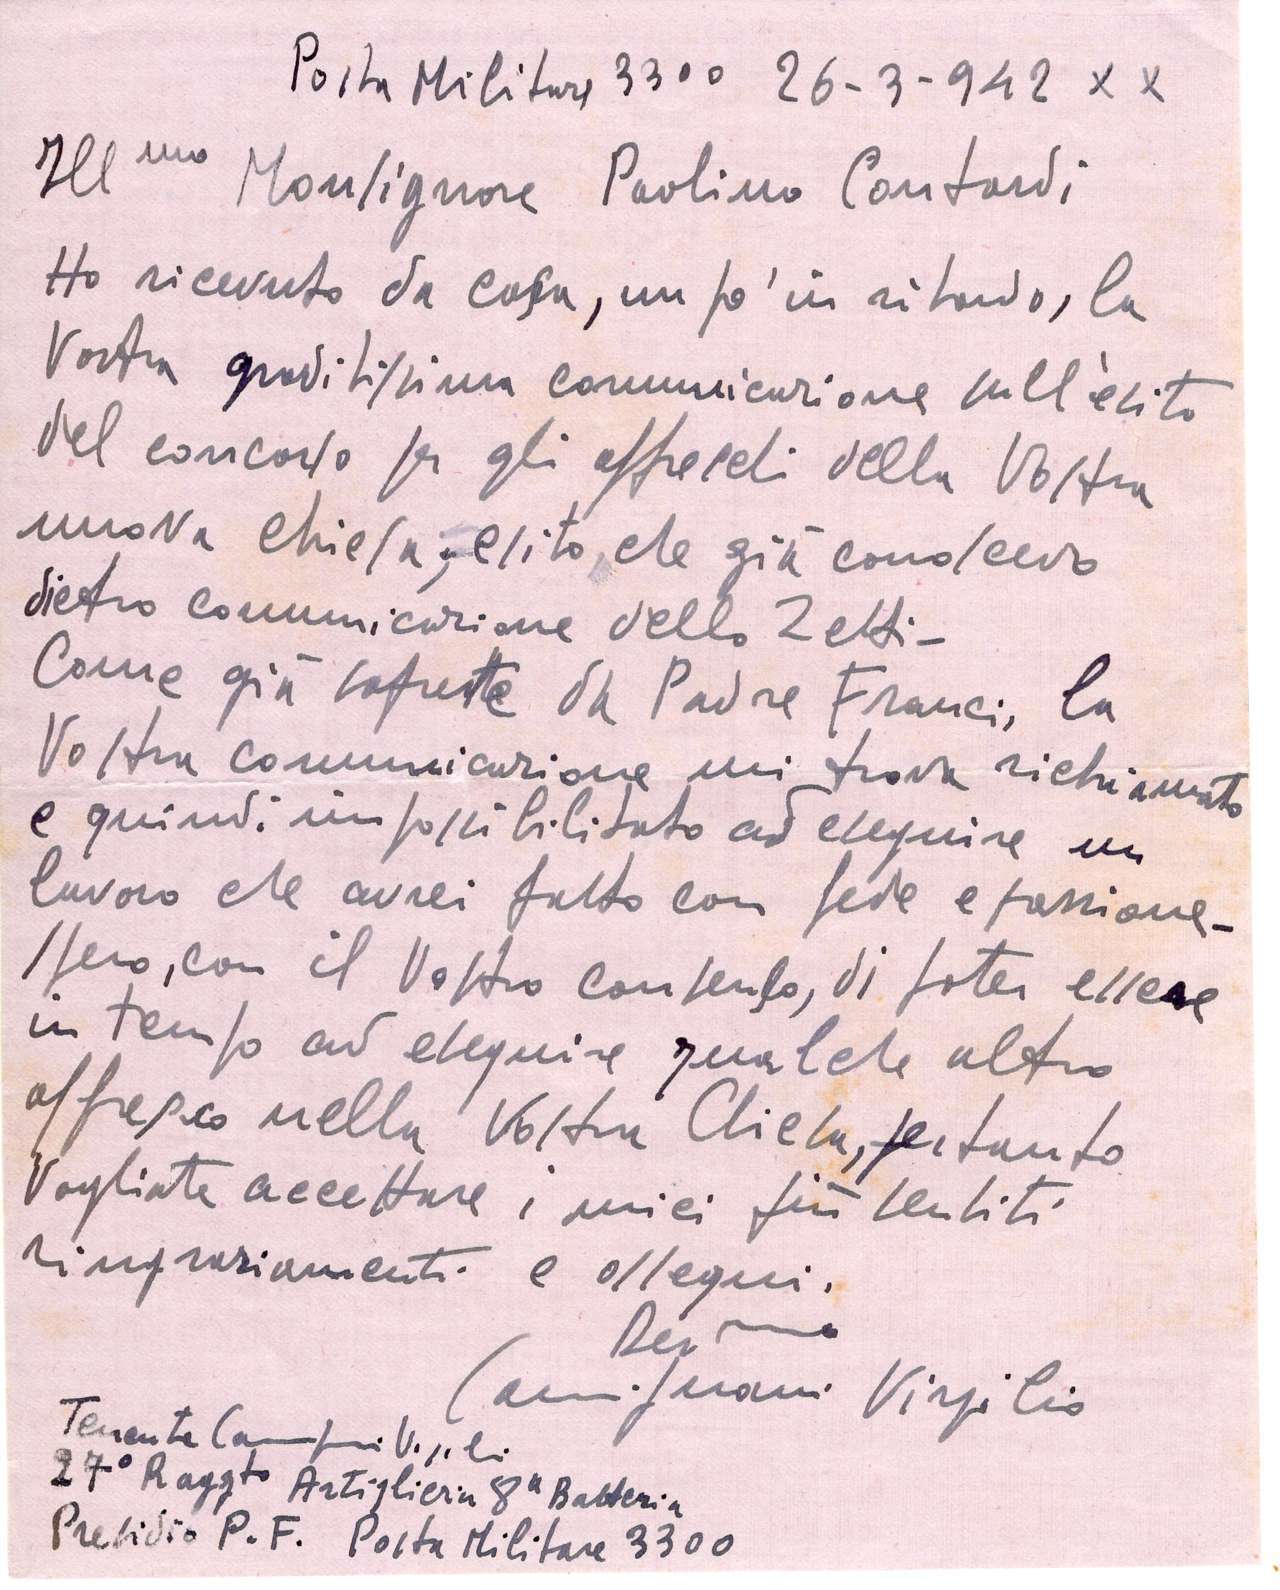 Posta Militare 3300 26-3-942 XX
Ill mo Monsignore Paolino Contardi
Ho ricevuto da casa, un po' in ritardo, la
Vostra graditissima comunicazione sull'esito
del concorso per gli affreschi della Vostra
nuova chiesa, esito, che già conoscevo
dietro comunicazione dello Zetti-
Come già saprete da Padre Franci, la
Vostra comunicazione mi trova richiamato
e quindi impossibilitato ad eseguire un
lavoro che avrei fatto con fede e passione-
Spero, con il Vostro consenso, di poter essere
in tempo ad eseguire qualche altro
affresco nella Vostra Chiesa, pertanto
Vogliate accettare i miei più sentiti
ringraziamenti e ossequi.
Dev mo
Carmignani Virgilio
Tenente Carmignani Virgilio
27° Raggto Artiglieria 8a Batteria
Presidio P.F. Posta Militare 3300